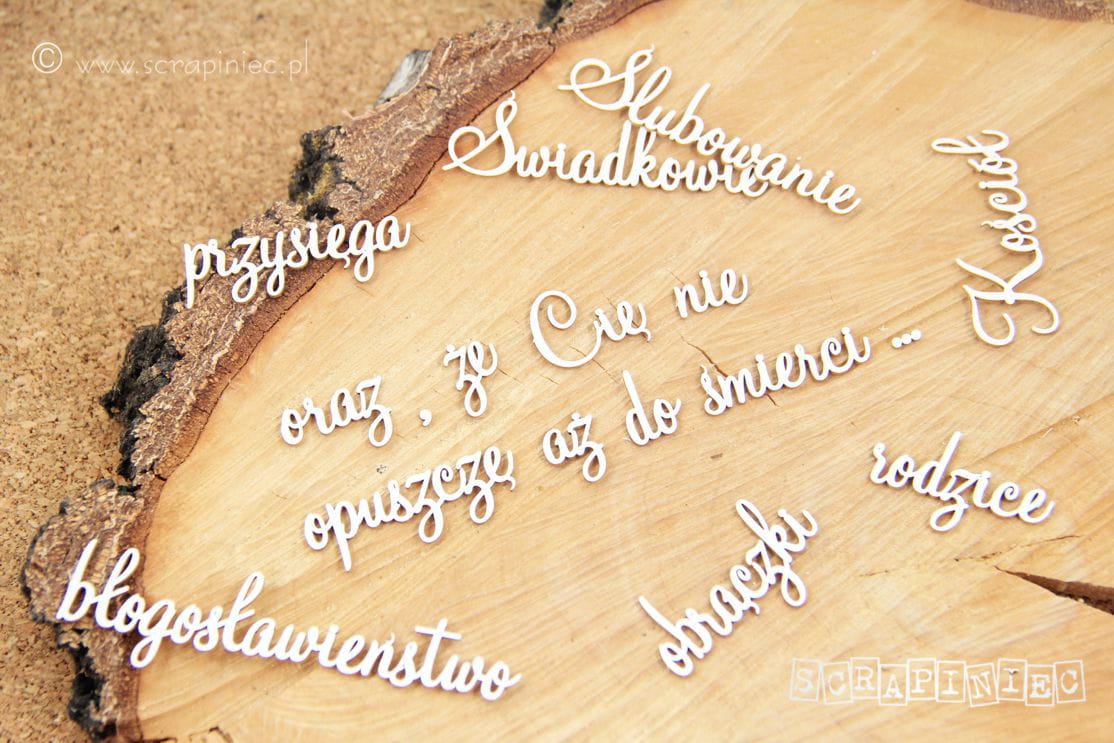 © www.scrapiniec.pl
Ślubowanie
Świadkowie
Kościół
przysięga
oraz , że Cię nie
opuszczę aż do śmierci ...
rodzice
obrączki
błogosławieństwo
SCRAPINIEC